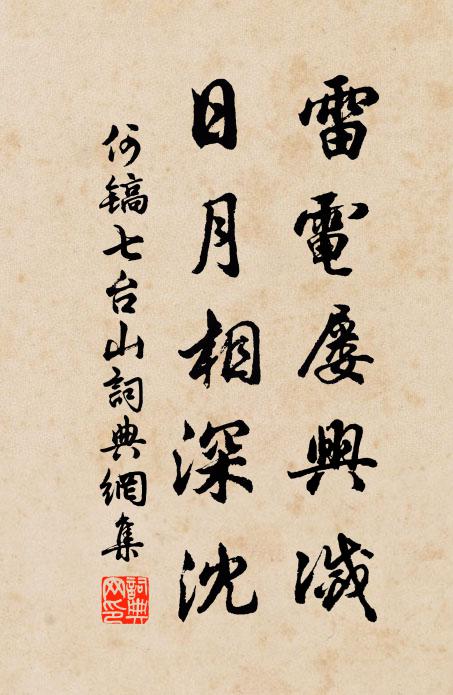 雷電屡興滅
日月相深沈
何镐七台山詞典網集
詞典網印